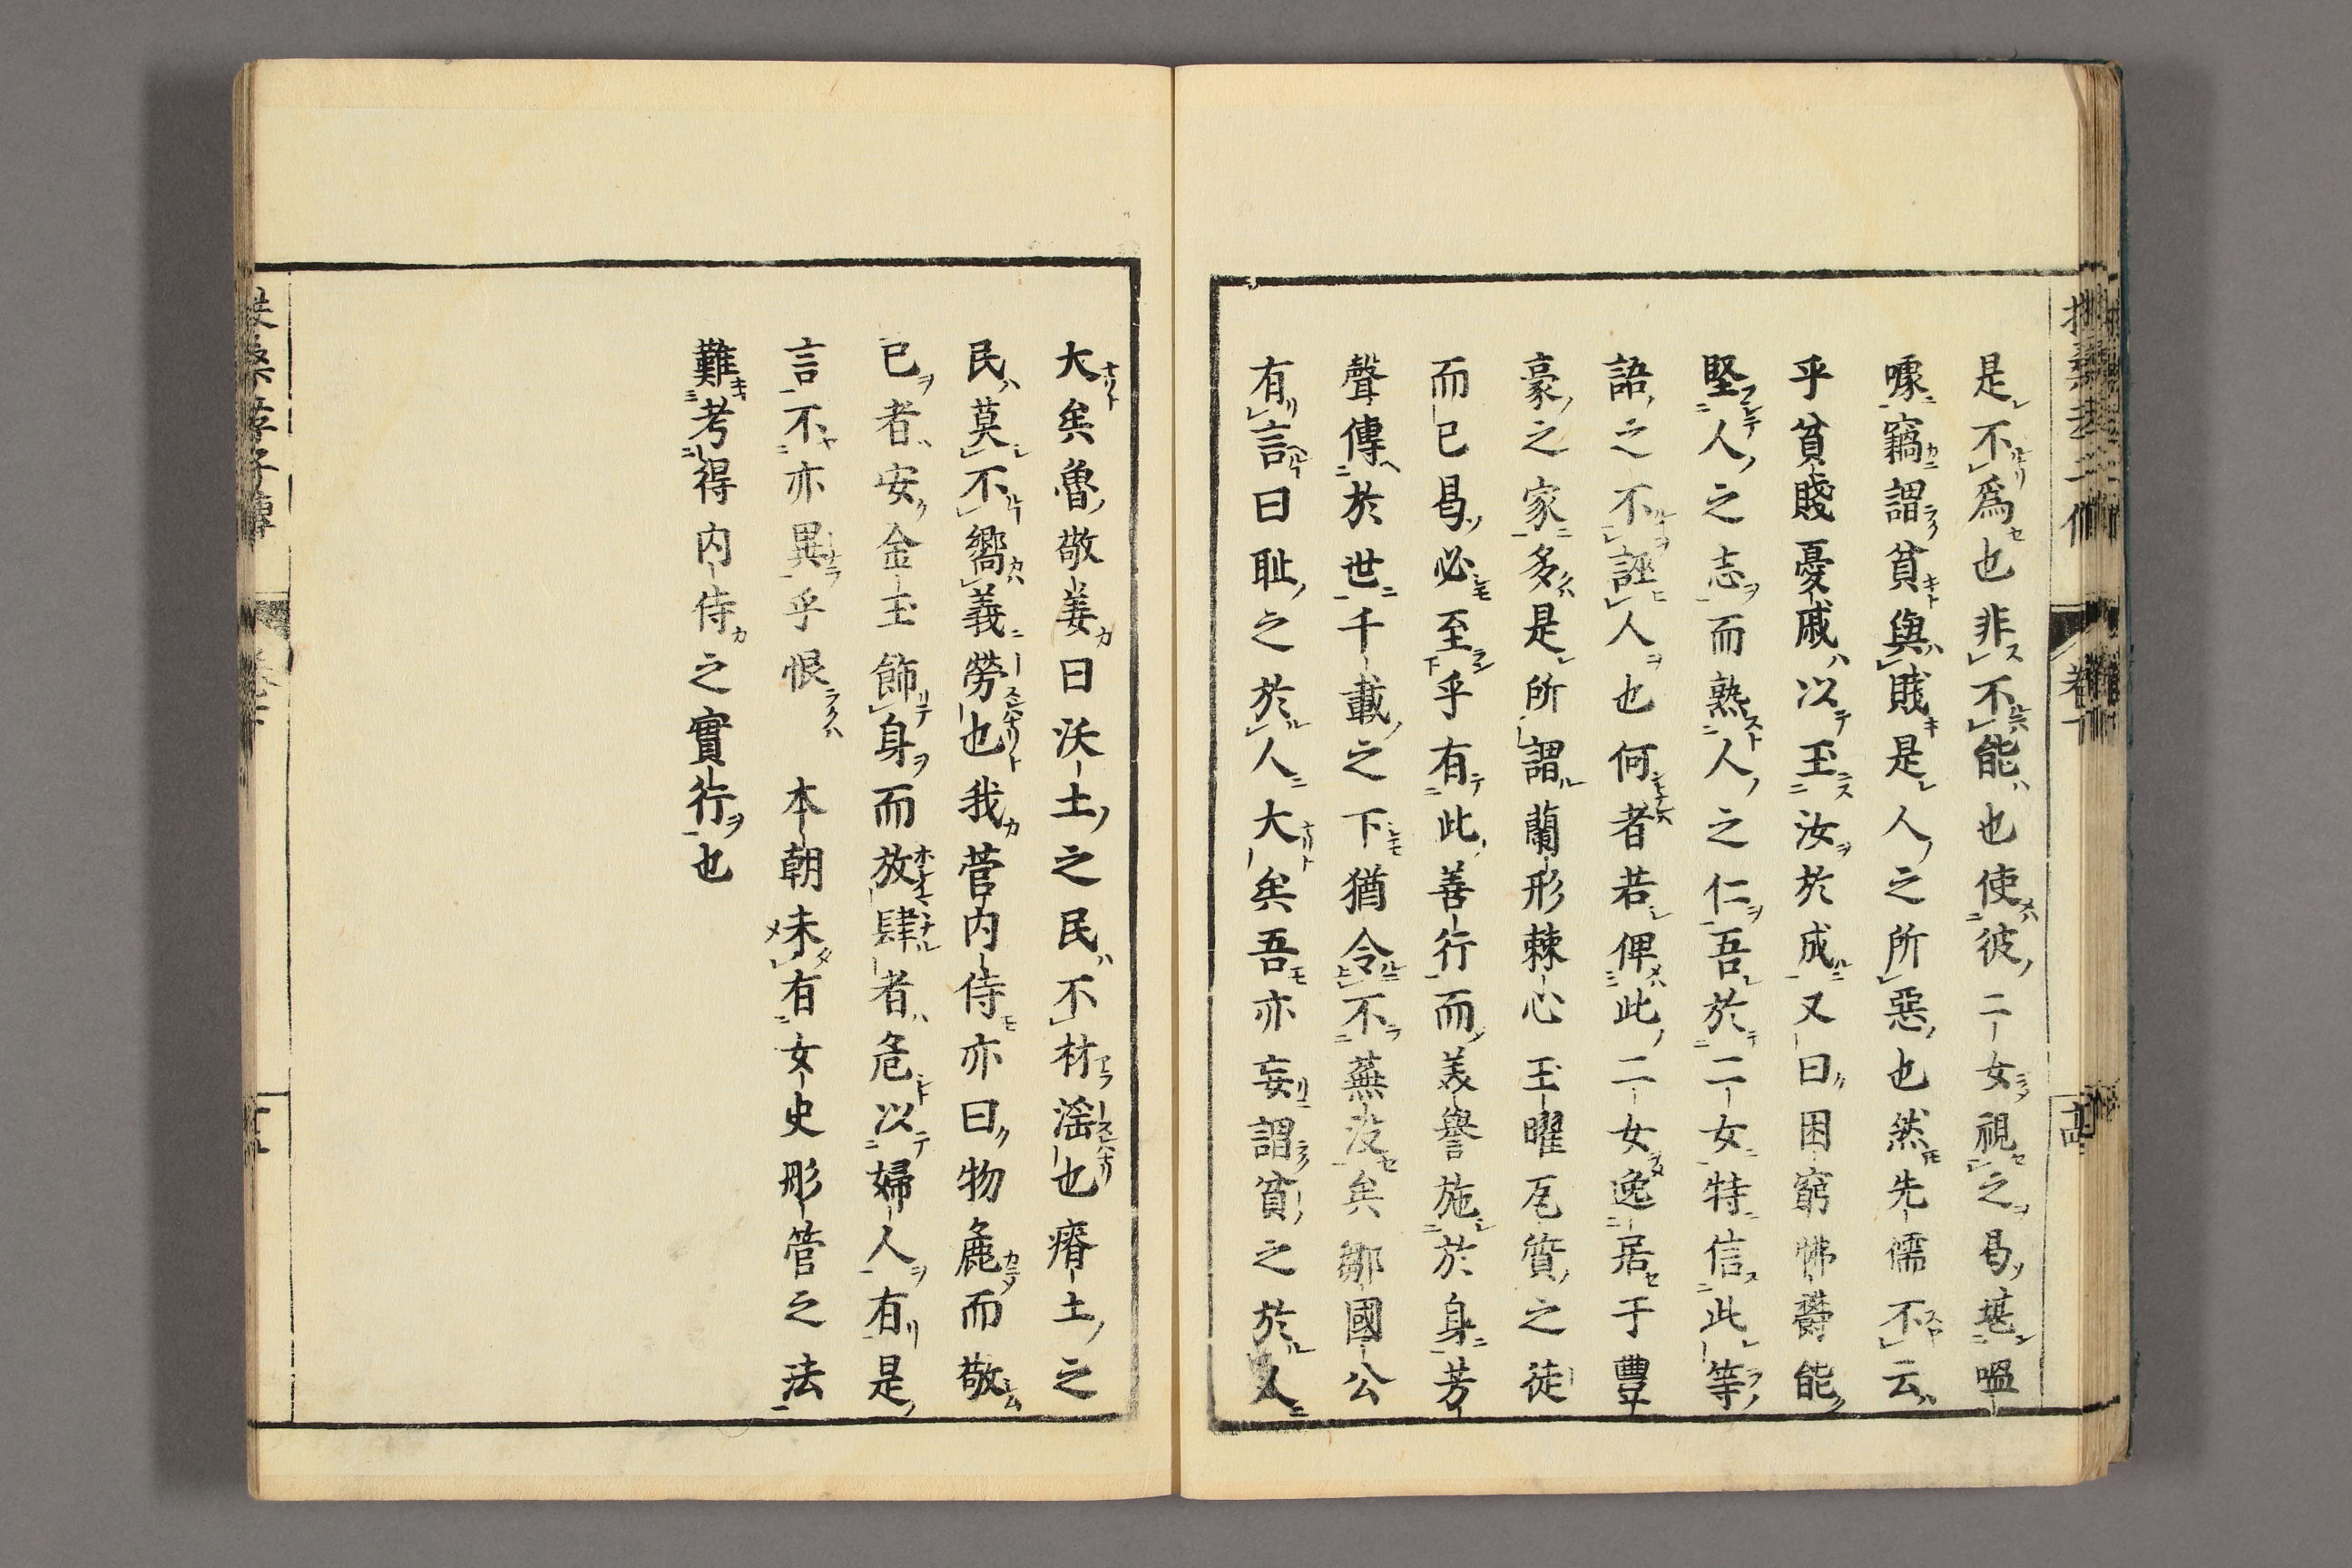 是不爲也非不能也使彼二女視之曷堪嗢
噱竊謂貧與賎是人之所惡也然先儒不云
乎貧賤憂戚以玉汝於成又曰困窮怫欝能
堅人之志而熟人之仁吾於二女特信此等
語之不誣人也何者若俾此二女逸居于豊
豪之家多是所謂蘭形棘心玉曜瓦質之徒
而已曷必至乎有此善行而美譽施於身芳
聲傳於世千載之下猶令不蕪没矣鄒國公
有言曰耻之於人大矣吾亦妄謂貧之於人
大矣魯敬姜曰沃土之民不材滛也瘠土之
民莫不嚮義勞也我菅内侍亦曰物麁而敬
已者安金玉飾身而放肆者危以婦人有是
言不亦異乎恨　本朝未有女史彤管之法
難考得内侍之實行也
扶桑孝子傳　卷下